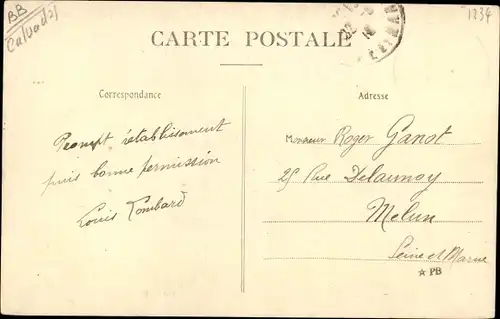 BB
Calvados
1234
CARTE POSTALE
Correspondance
Adresse
Prompt rétablissement
puis bonne permission
Louis Lombard
Monsieur Roger Ganot
25 Rue Delaunoy
Melun
Seine et Marne
★ PB